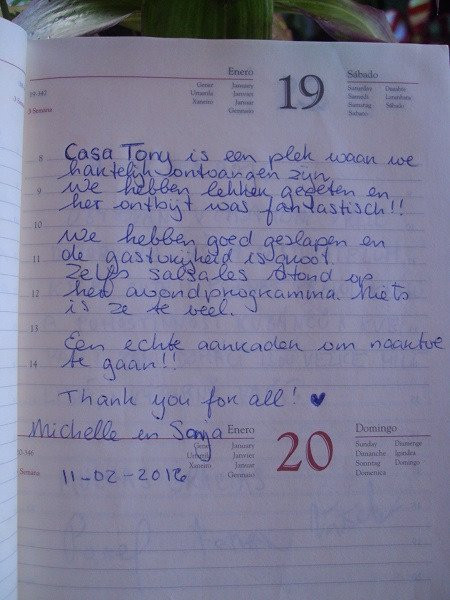 Enero
19
Sábado
19-346
3 Semana
Gener January
Urtarrila Janvier
Xaneiro Januar
Gennaio
Saturday Dissabte
Samedi Larunbata
Samstag Sábado
Sabato
8
9
10
11
12
13
14
Casa Tony is een plek waar we
hartelijk ontvangen zijn.
We hebben lekker gegeten en
het ontbijt was fantastisch!!
We hebben goed geslapen en
de gastvrijheid is groot.
Zelfs salsales stond op
het avondprogramma. Niets
is ze te veel.
Een echte aanrader om naartoe
te gaan!!
Thank you for all! ♥
Michelle en Sonja
11-02-2016
Enero
20
Domingo
20-346
Semana
Gener January
Urtarrila Janvier
Xaneiro Januar
Gennaio
Sunday Diumenge
Dimanche Igandea
Sonntag Domingo
Domenica